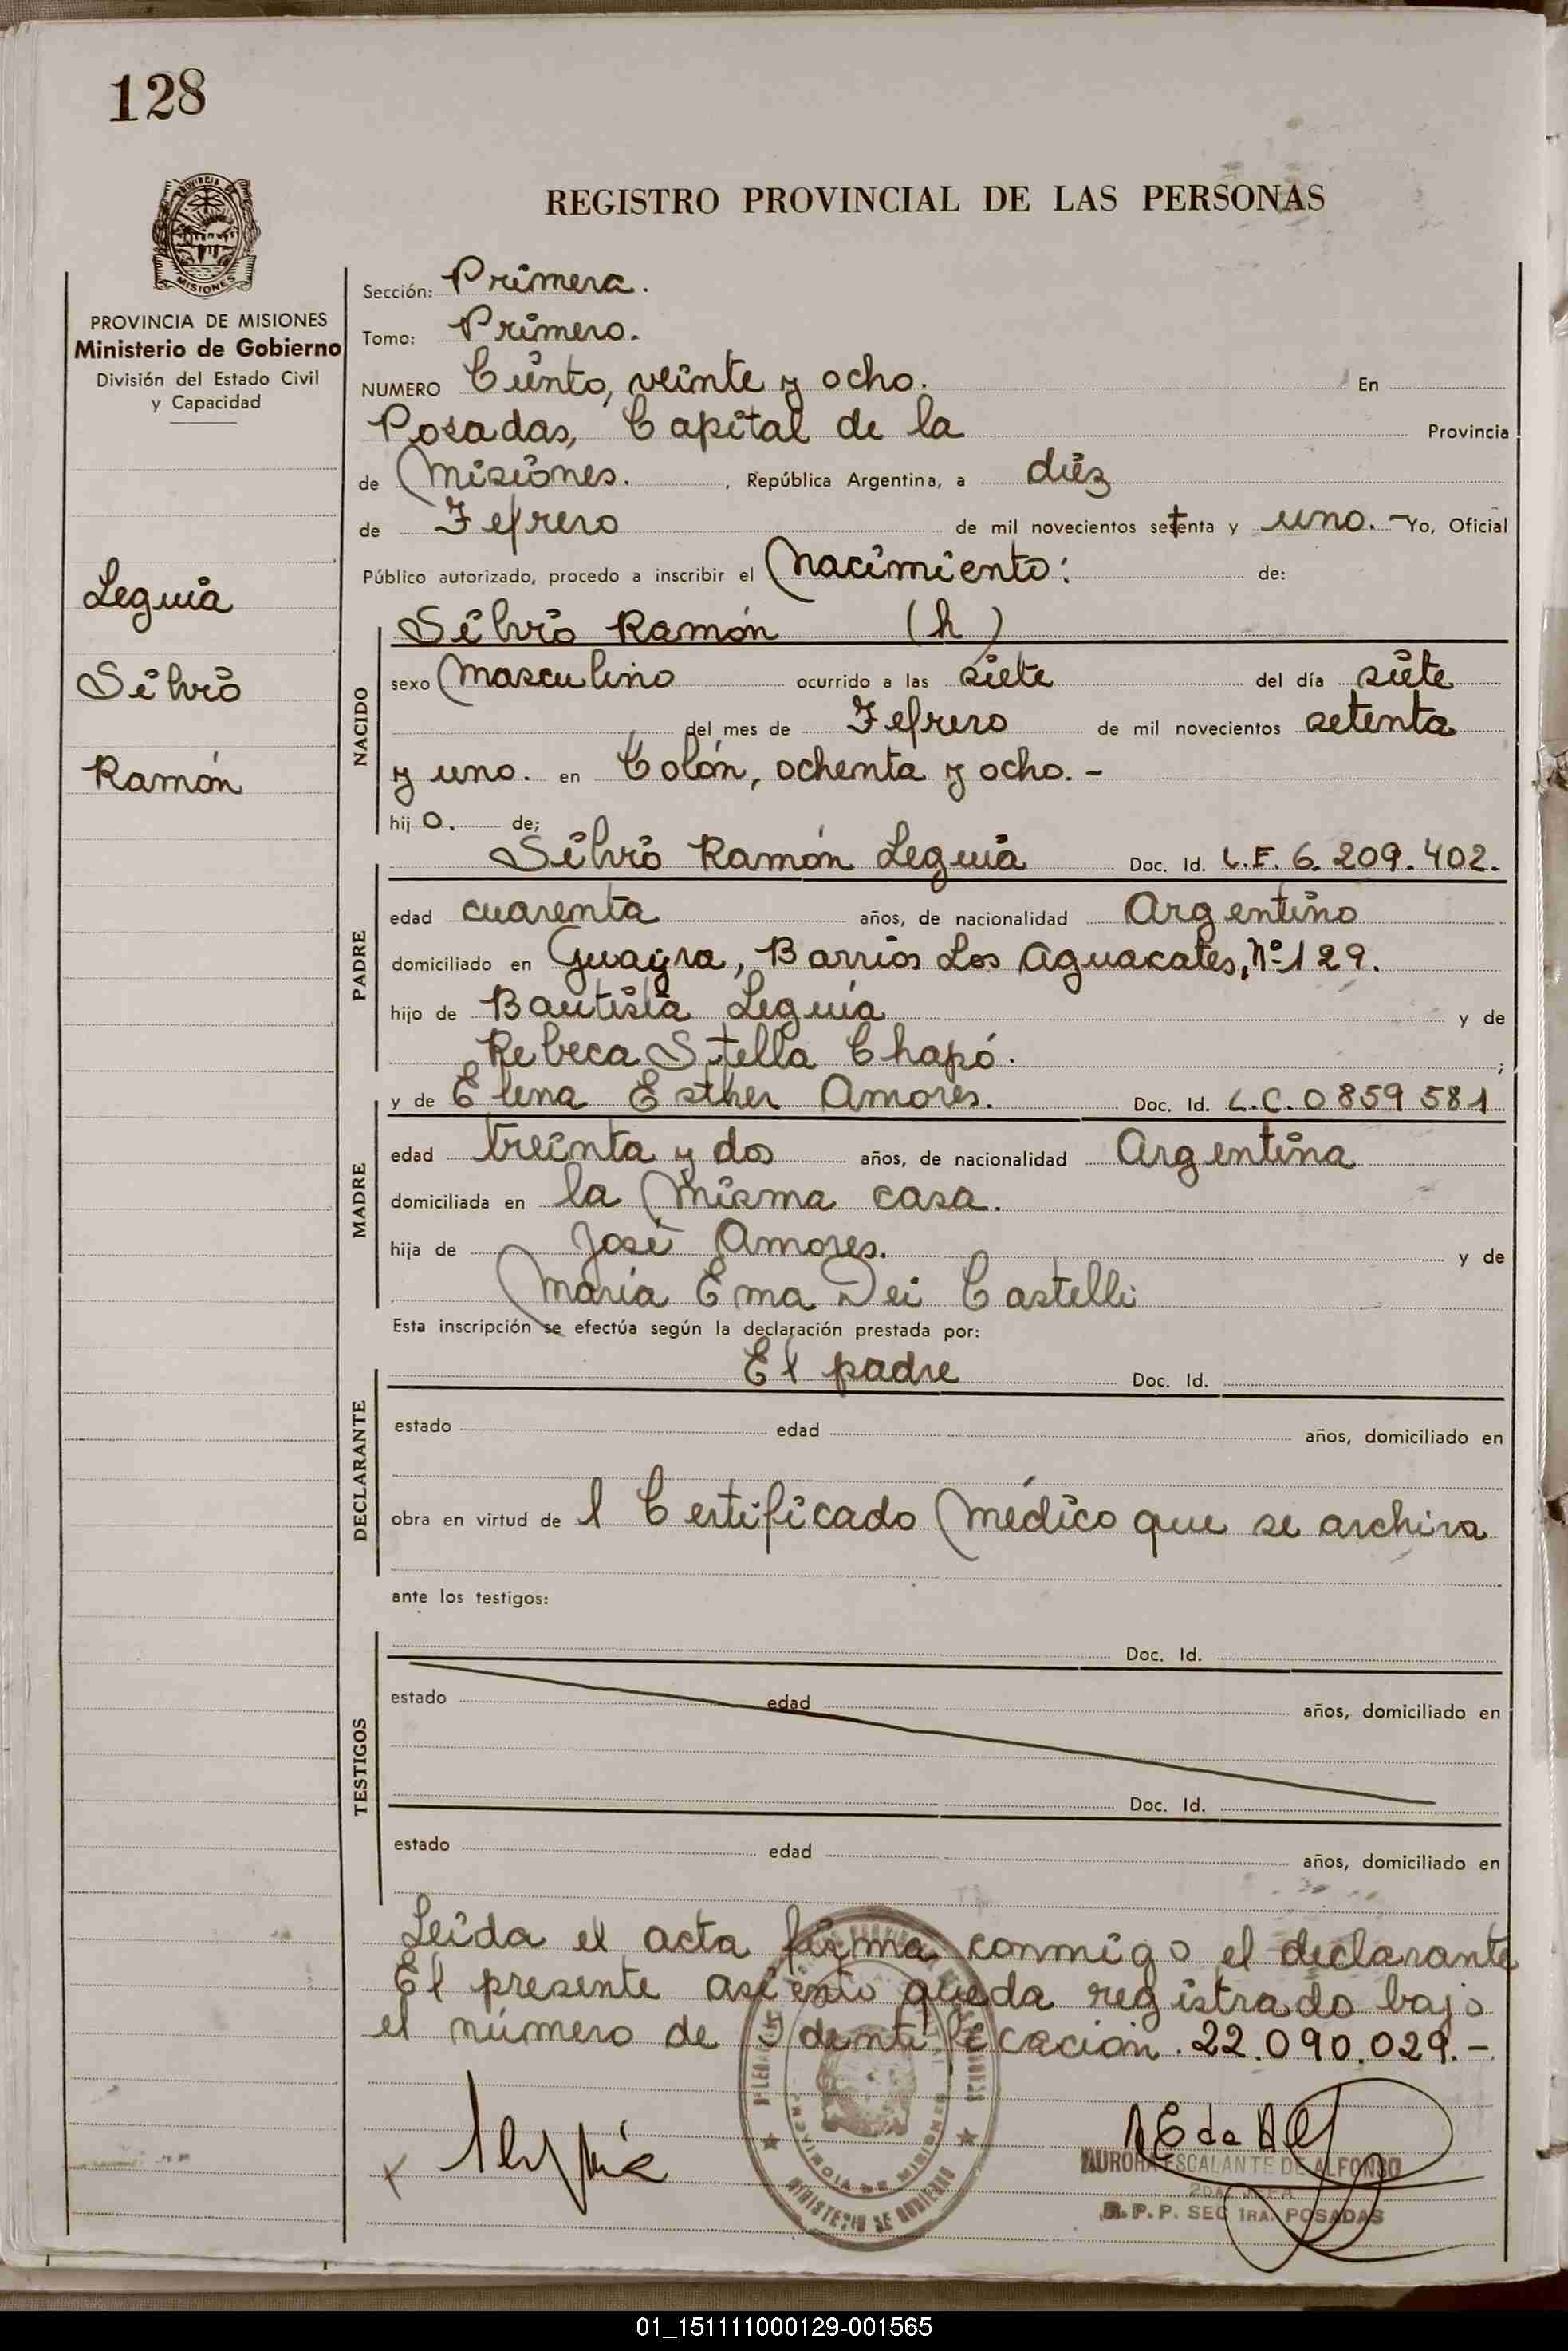 128
PROVINCIA DE MISIONES
Ministerio de Gobierno
División del Estado Civil
y Capacidad
Leguia
Silvio
Ramón
REGISTRO PROVINCIAL DE LAS PERSONAS
Sección: Primera.
Tomo: Primero.
NUMERO Ciento, veinte y ocho. En
Posadas, Capital de la Provincia
de Misiones. , República Argentina, a diez
de Febrero de mil novecientos setenta y uno. - Yo, Oficial
Público autorizado, procedo a inscribir el Nacimiento: de:
Silvio Ramón (h)
NACIDO
sexo Masculino ocurrido a las siete del día siete
del mes de Febrero de mil novecientos setenta
y uno. en Colón, ochenta y ocho. -
hijo. de;
Silvio Ramón Leguia Doc. Id. L.E. 6.209.402.
PADRE
edad cuarenta años, de nacionalidad Argentino
domiciliado en Guayra, Barrios Los Aguacates, Nº 129.
hijo de Bautista Leguía y de
Rebeca Stella Chapó. ;
y de Elena Esther Amores. Doc. Id. L.C. 0859581
MADRE
edad treinta y dos años, de nacionalidad Argentina
domiciliada en la Misma casa.
hija de José Amores. y de
María Ema Dei Castelli
Esta inscripción se efectúa según la declaración prestada por:
El padre Doc. Id.
DECLARANTE
estado edad años, domiciliado en
obra en virtud de l Certificado Médico que se archiva
ante los testigos:
TESTIGOS
Doc. Id.
estado edad años, domiciliado en
Doc. Id.
estado edad años, domiciliado en
Leida el acta firma conmigo el declarante
El presente asiento queda registrado bajo
el número de Identificación. 22.090.029.-
AURORA ESCALANTE DE ALFONSO
2DA. JEFA
R.P.P. SEC 1RA. POSADAS
01_151111000129-001565